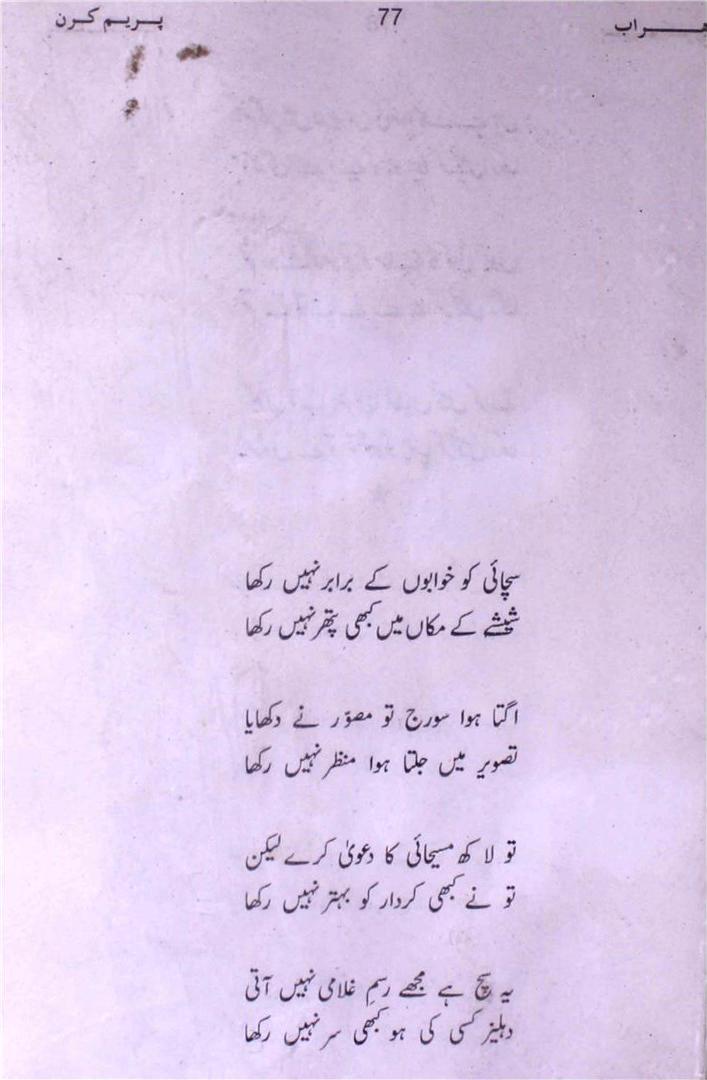 ھراب 77 پریم کرن
سچائی کو خوابوں کے برابر نہیں رکھا
شیشے کے مکاں میں کبھی پتھر نہیں رکھا
اگتا ہوا سورج تو مصوّر نے دکھایا
تصویر میں جلتا ہوا منظر نہیں رکھا
تو لاکھ مسیحائی کا دعویٰ کرے لیکن
تو نے کبھی کردار کو بہتر نہیں رکھا
یہ سچ ہے مجھے رسمِ غلامی نہیں آتی
دہلیز کسی کی ہو کبھی سر نہیں رکھا